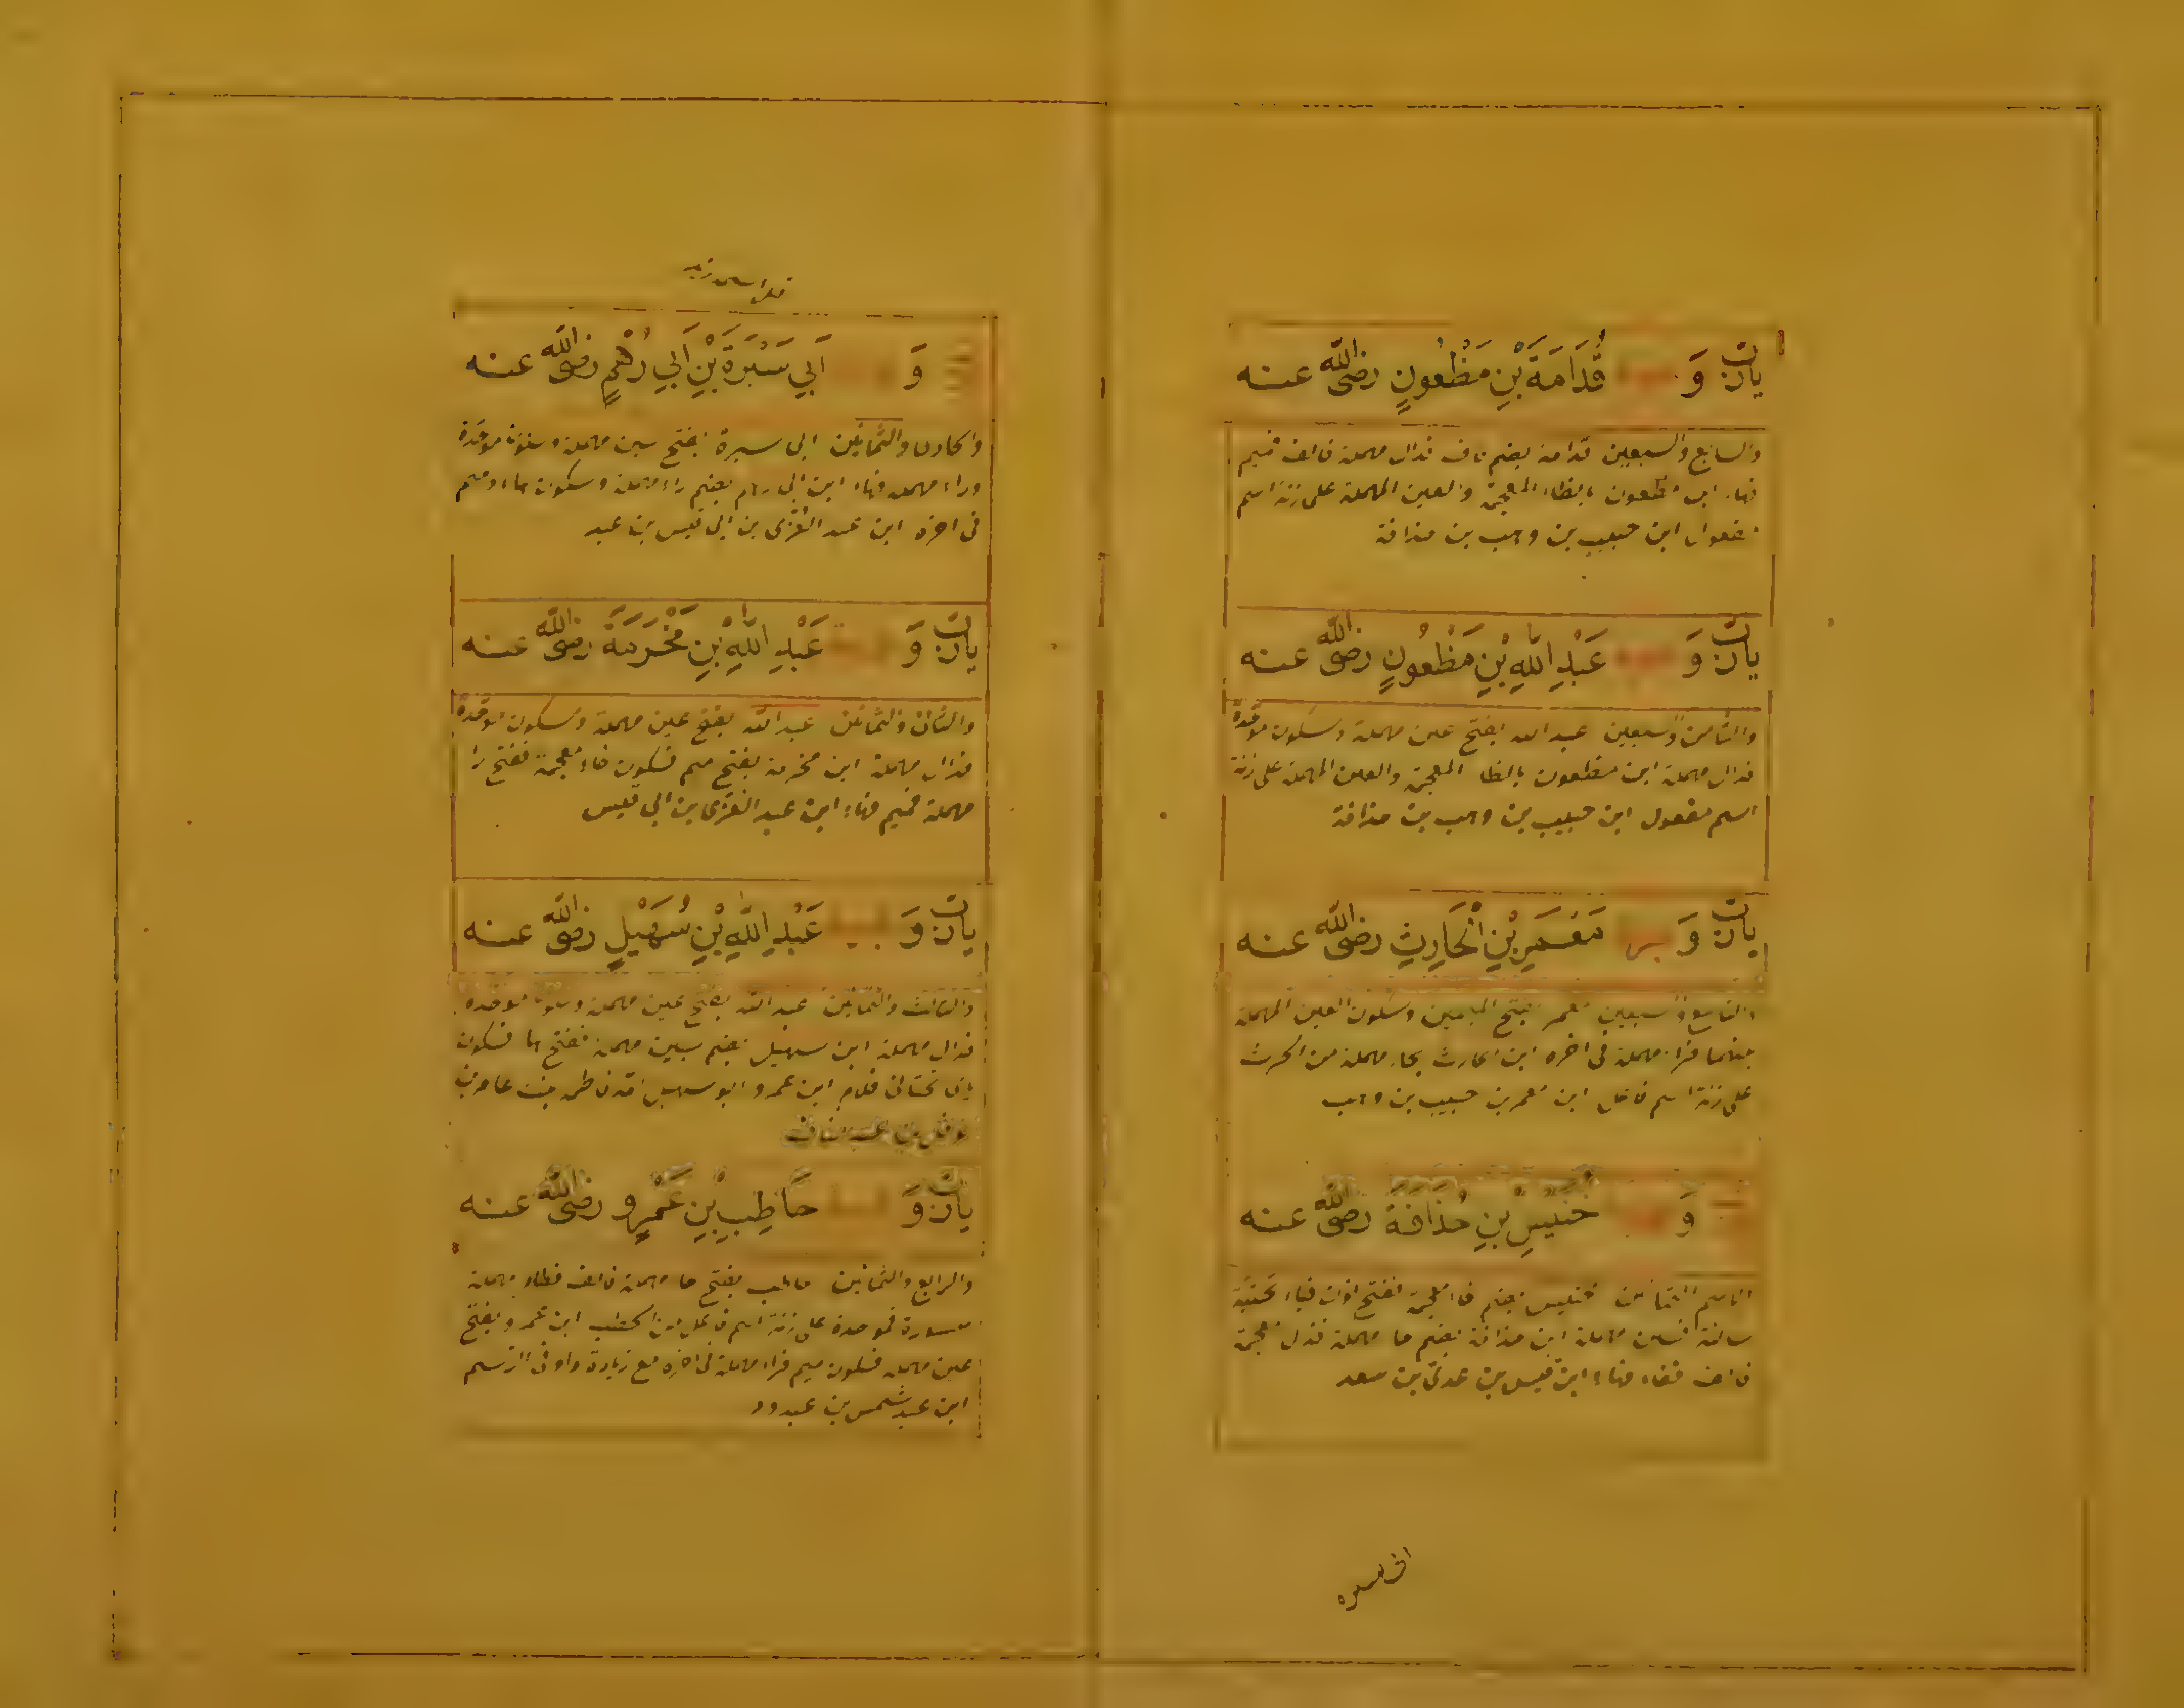 يارب و قُدَامَةَ بْنِ مَظْعُونٍ رضى الله عنه
والسابع والسبعين قدامة بضم قاف فدال مهملة فالف فميم
فهاء ابن مظعون بالظاء المعجمة والعين المهملة على زنة اسم
مفعول ابن حبيب بن وهب بن حذافة
يارب وَ عَبْدِ اللهِ بْنِ مَظْعُونٍ رضى الله عنه
والثامن وسبعين عبد الله بفتح عين مهملة وسكون موحدة
فدال مهملة ابن مظعون بالظا المعجمة والعين المهملة على زنة
اسم مفعول ابن حبيب بن وهب بن حذافة
يارب وَ مَعْمَرِ بْنِ الْحَارِثِ رضى الله عنه
والتاسع وسبعين معمر بفتح الميمين وسكون العين المهملة
بينهما فراء مهملة فى اخره ابن الحارث بحاء مهملة من الحرث
على زنة اسم فاعل ابن معمر بن حبيب بن وهب
وَ خُنَيْسِ بْنِ حُذَافَةَ رضى الله عنه
خنيس بضم خاء معجمة ففتح نون فياء تحتية
ساكنة فسين مهملة ابن حذافة بضم حا مهملة فذال معجمة
فالف ففاء فهاء ابن قيس بن عدى بن سعد
وَ اَبِي سَبْرَةَ بْنِ اَبِي رُهْمٍ رضى الله عنه
والحادى والثمانين ابى سبرة بفتح سين مهملة وسكون موحدة
وراء مهملة فهاء ابن ابى رهم بضم راء مهملة وسكون هاء وميم
فى اخره ابن عبد العزى بن ابى قيس بن عبد
يارب وَ عَبْدِ اللهِ بْنِ مَخْرَمَةَ رضى الله عنه
والثانى والثمانين عبد الله بفتح عين مهملة وسكون موحدة
فدال مهملة ابن مخرمة بفتح ميم فسكون خاء معجمة ففتح را
مهملة فميم فهاء ابن عبد العزى بن ابى قيس
يارب وَ عَبْدِ اللهِ بْنِ سُهَيْلٍ رضى الله عنه
والثالث والثمانين عبد الله بفتح عين مهملة وسكون موحدة
فدال مهملة ابن سهيل بضم سين مهملة ففتح ها فسكون
ياء تحتانى فلام ابن عمرو ابو سهيل فاطمة بنت عامر بن
نوفل بن عبد مناف
يارب وَ حَاطِبِ بْنِ عَمْرٍو رضى الله عنه
والرابع والثمانين حاطب بفتح حا مهملة فالف فطاء مهملة
مكسورة فموحدة على زنة اسم فاعل من الحطب ابن عمرو بفتح
عين مهملة فسكون ميم فراء مهملة فى اخره مع زيادة واو فى الرسم
ابن عبد شمس بن عبدود